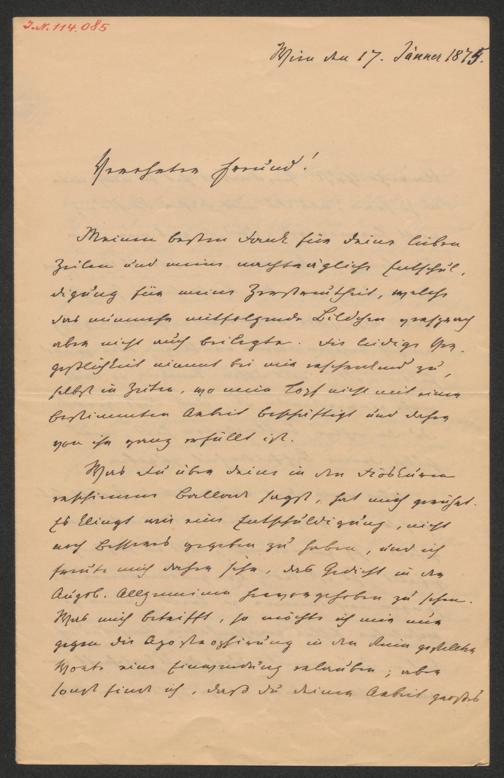 I.N. 114.085
Wien den 17. Jänner 1875.
Verehrter Freund!
Meinen besten Dank für Deine lieben
Zeilen und meine nachträgliche Entschul-
digung für meine Zerstreutheit, welche
das nunmehr mitfolgende Bildchen versprach
aber nicht auch beilegte. Die leidige Ver-
geßlichkeit nimmt bei mir erschreckend zu,
selbst in Zeiten, wo mein Kopf nicht mit einer
bestimmten Arbeit beschäftigt und daher
von ihr ganz erfüllt ist.
Was Du über Deine in den Dioskuren
erschienene Ballade sagst, hat mich gerührt.
Es klingt wie eine Entschuldigung, nicht
noch Besseres gegeben zu haben, und ich
freute mich daher sehr, das Gedicht in der
Augsb. Allgemeinen hervorgehoben zu sehen.
Was mich betrifft, so möchte ich mir nur
gegen die Apostrophirung in den gestellten
Worte eine Einwendung erlauben; aber
sonst finde ich, daß Du Deiner Arbeit großes